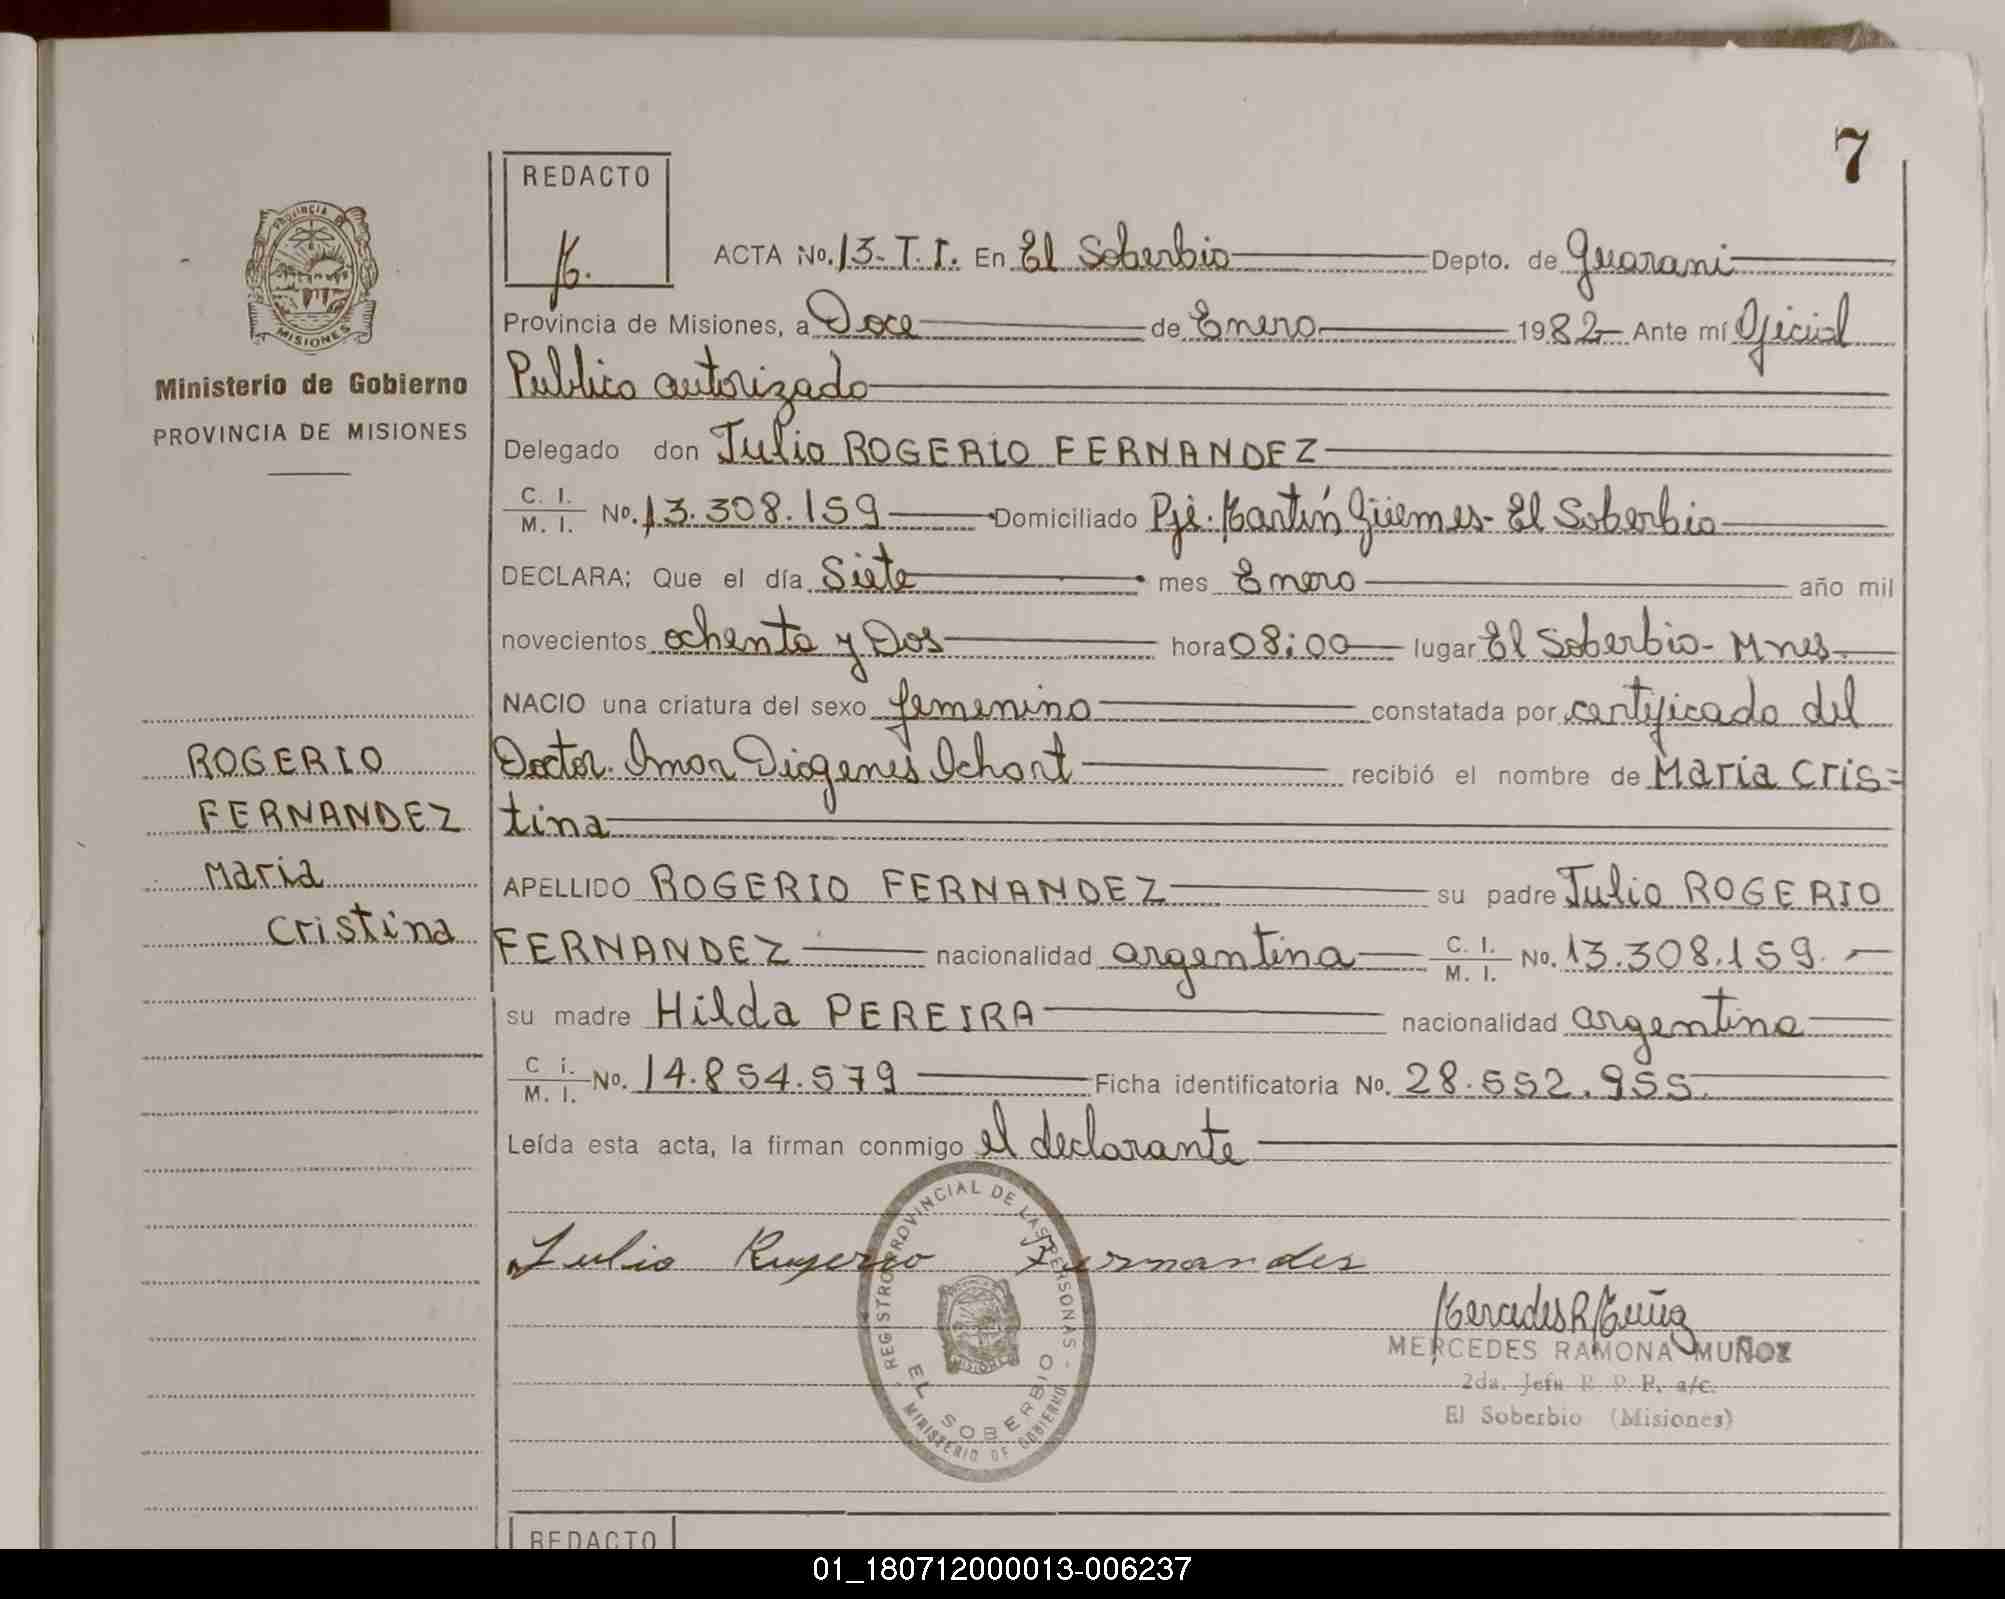 7
REDACTO
ACTA No. 13- T. I. En El Soberbio Depto. de Guarani
Provincia de Misiones, a Doce de Enero 1982 Ante mí Oficial
Publico autorizado
Delegado don Julio ROGERIO FERNANDEZ
C. I.
M. I. No. 13.308.159 Domiciliado Pje. Martín Güemes- El Soberbio
DECLARA; Que el día Siete mes Enero año mil
novecientos ochenta y Dos hora 08:00 lugar El Soberbio- Mnes
NACIO una criatura del sexo femenino constatada por certificado del
Doctor. Omar Diogenes Ichart recibió el nombre de Maria Cris=
tina
APELLIDO ROGERIO FERNANDEZ su padre Julio ROGERIO
FERNANDEZ nacionalidad argentina C. I. M. I. No. 13.308.159.
su madre Hilda PEREIRA nacionalidad argentina
C i. M. I. No. 14.854.579 Ficha identificatoria No. 28.552.955.
Leída esta acta, la firman conmigo el declarante
Julio Rugerio Fernandes
Mercedes R Muñoz
MERCEDES RAMONA MUÑOZ
2da. Jefa R. P. P. a/c.
El Soberbio (Misiones)
REGISTRO PROVINCIAL DE LAS PERSONAS
MISIONES
EL SOBERBIO
MINISTERIO DE GOBIERNO
PROVINCIA DE
MISIONES
Ministerio de Gobierno
PROVINCIA DE MISIONES
ROGERIO
FERNANDEZ
Maria
Cristina
REDACTO
01_180712000013-006237